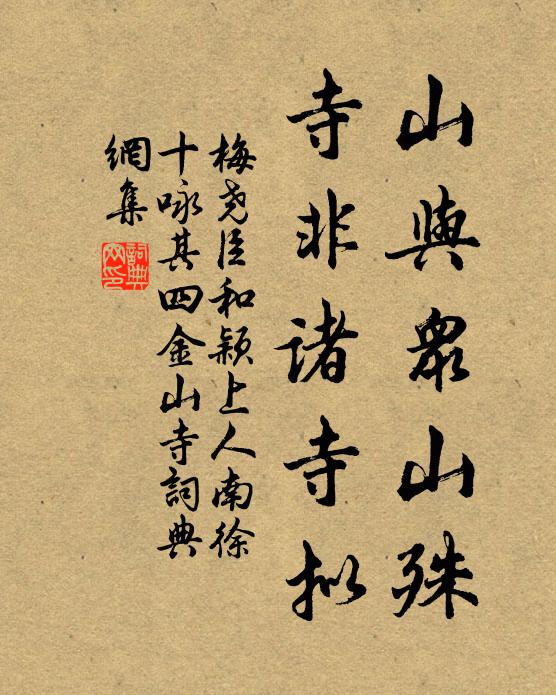 山與眾山殊
寺非諸寺拟
梅堯臣和颖上人南徐
十咏其四金山寺詞典
網集
詞典
网印